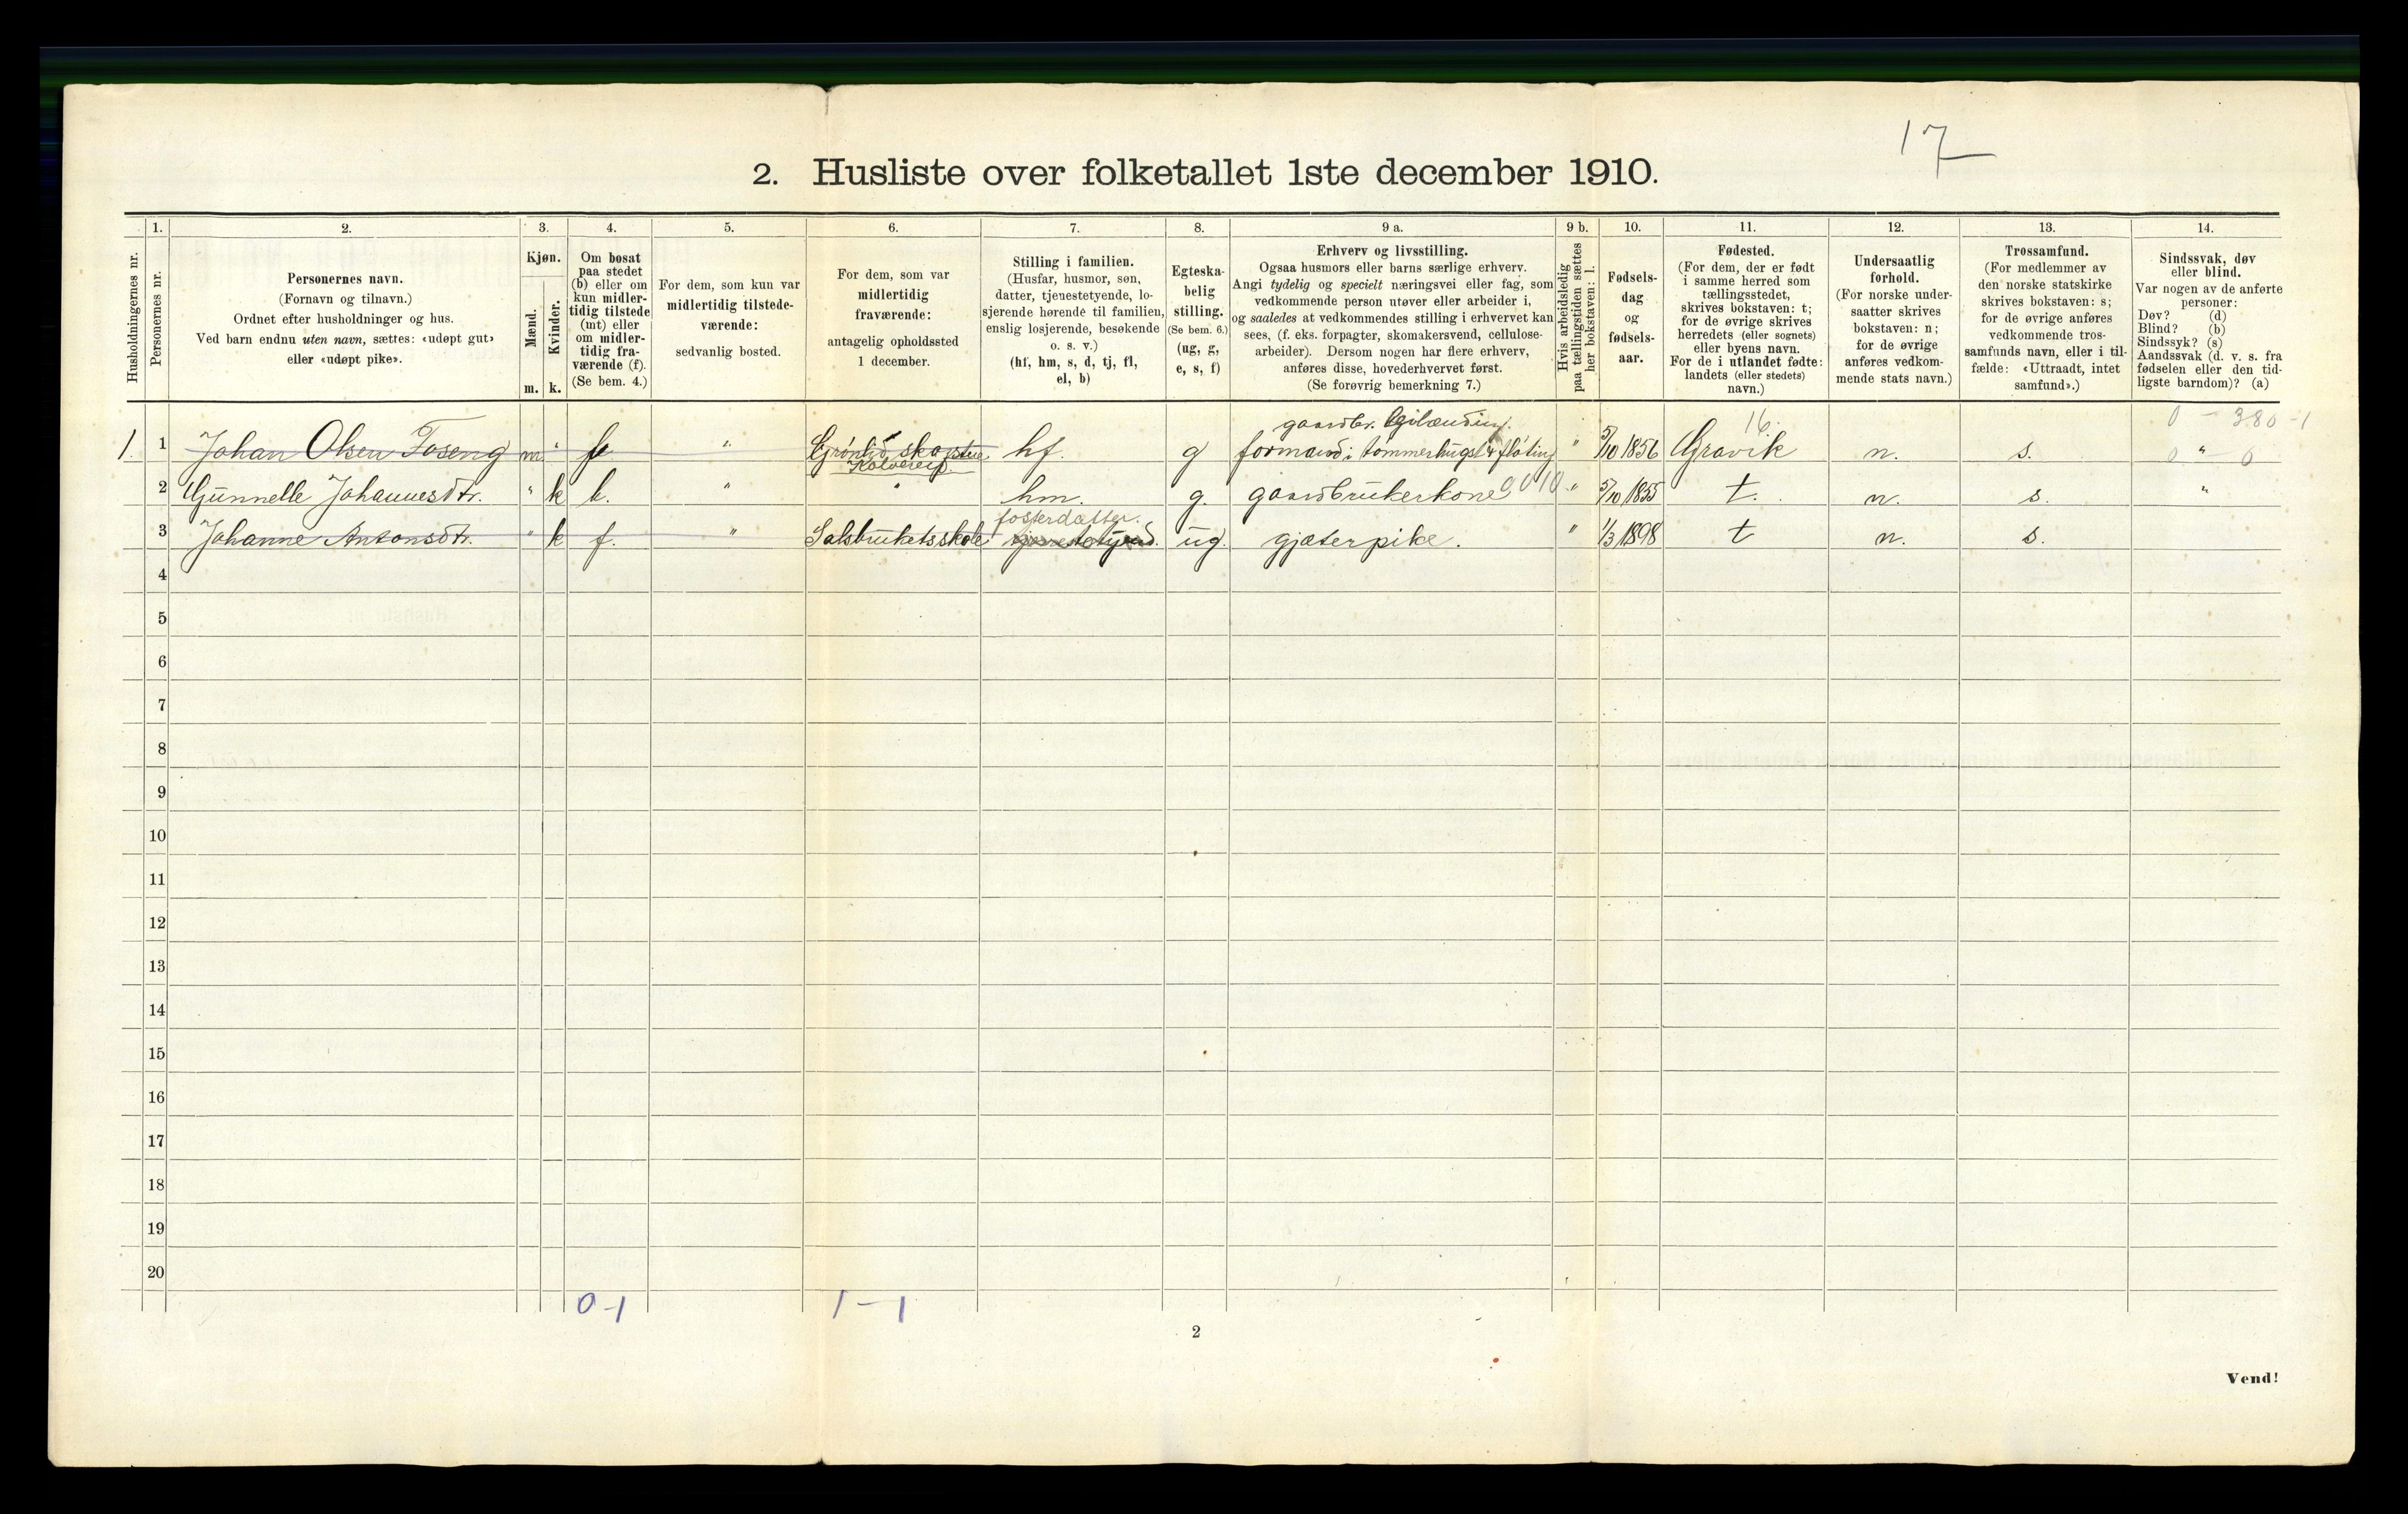 17
2. Husliste over folketallet 1ste december 1910.
Husholdningernes nr.
1.
Personernes nr.
2.
Personernes navn.
(Fornavn og tilnavn.)
Ordnet efter husholdninger og hus.
Ved barn endnu uten navn, sættes: «udøpt gut»
eller «udøpt pike».
3.
Kjøn.
Mænd.
m.
Kvinder.
k.
4.
Om bosat
paa stedet
(b) eller om
kun midler-
tidig tilstede
(mt) eller
om midler-
tidig fra-
værende (f).
(Se bem. 4.)
5.
For dem, som kun var
midlertidig tilstede-
værende:
sedvanlig bosted.
6.
For dem, som var
midlertidig
fraværende:
antagelig opholdssted
1 december.
7.
Stilling i familien.
(Husfar, husmor, søn,
datter, tjenestetyende, lo-
sjerende hørende til familien,
enslig losjerende, besøkende
o. s. v.)
(hf, hm, s, d, tj, fl,
el, b)
8.
Egteska-
belig
stilling.
(Se bem. 6.)
(ug, g,
e, s, f)
9 a.
Erhverv og livsstilling.
Ogsaa husmors eller barns særlige erhverv.
Angi tydelig og specielt næringsvei eller fag, som
vedkommende person utøver eller arbeider i,
og saaledes at vedkommendes stilling i erhvervet kan
sees, (f. eks. forpagter, skomakersvend, cellulose-
arbeider). Dersom nogen har flere erhverv,
anføres disse, hovederhvervet først.
(Se forøvrig bemerkning 7.)
9 b.
Hvis arbeidsledig
paa tællingstiden sættes
her bokstaven: l.
10.
Fødsels-
dag
og
fødsels-
aar.
11.
Fødested.
(For dem, der er født
i samme herred som
tællingsstedet,
skrives bokstaven: t;
for de øvrige skrives
herredets (eller sognets)
eller byens navn.
For de i utlandet fødte:
landets (eller stedets)
navn.)
12.
Undersaatlig
forhold.
(For norske under-
saatter skrives
bokstaven: n;
for de øvrige
anføres vedkom-
mende stats navn.)
13.
Trossamfund.
(For medlemmer av
den norske statskirke
skrives bokstaven: s;
for de øvrige anføres
vedkommende tros-
samfunds navn, eller i til-
fælde: «Uttraadt, intet
samfund».)
14.
Sindssvak, døv
eller blind.
Var nogen av de anførte
personer:
Døv? (d)
Blind? (b)
Sindssyk? (s)
Aandssvak (d. v. s. fra
fødselen eller den tid-
ligste barndom)? (a)
gaardbr. 16. 0 - 380 -1
1. 1 Johan Olsen Foseng m. " f " Grønlid skogstue hf. g formand i tømmerhugst & fløting " 5/10 1856 Gravik n. s. " 0 - 0
Kolvereid.
2 Gunnelle Johannesdtr. " k b. " " hm. g. gaardbrukerkone " 5/10 1855 t. n. s. "
fosterdatter.
3 Johanne Antonsdtr. " k f. " Salsbruketsskole ug. gjæterpike. " 1/3 1898 t n. s.
4
5
6
7
8
9
10
11
12
13
14
15
16
17
18
19
20
0-1 1-1
2
Vend!